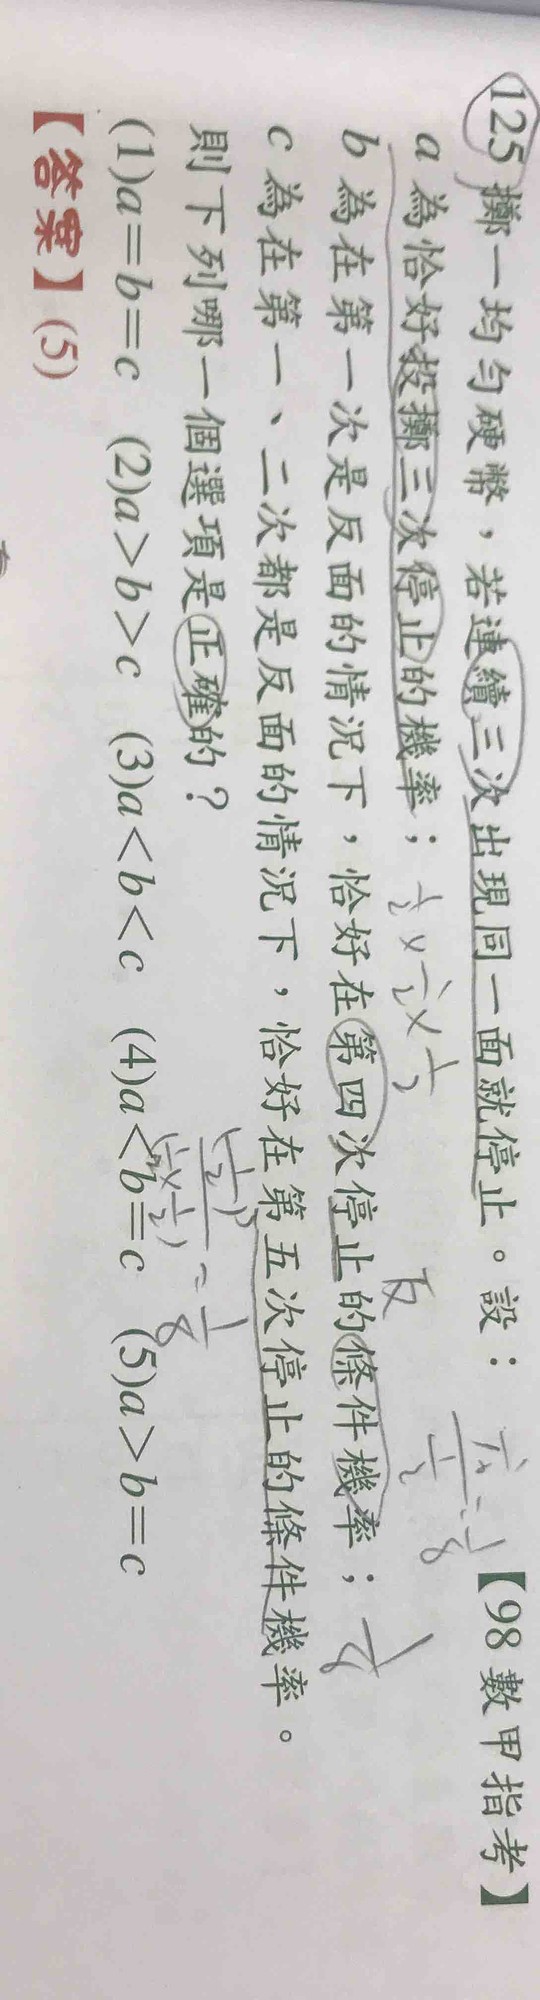 125 擲一均勻硬幣，若連續三次出現同一面就停止。設： 【98 數甲指考】
a 為恰好投擲三次停止的機率；
1/2 × 1/2 × 1/2
b 為在第一次是反面的情況下，恰好在第四次停止的條件機率；
反
c 為在第一、二次都是反面的情況下，恰好在第五次停止的條件機率。
則下列哪一個選項是正確的？
(1)a=b=c (2)a>b>c (3)a<b<c (4)a<b=c (5)a>b=c
【答案】(5)